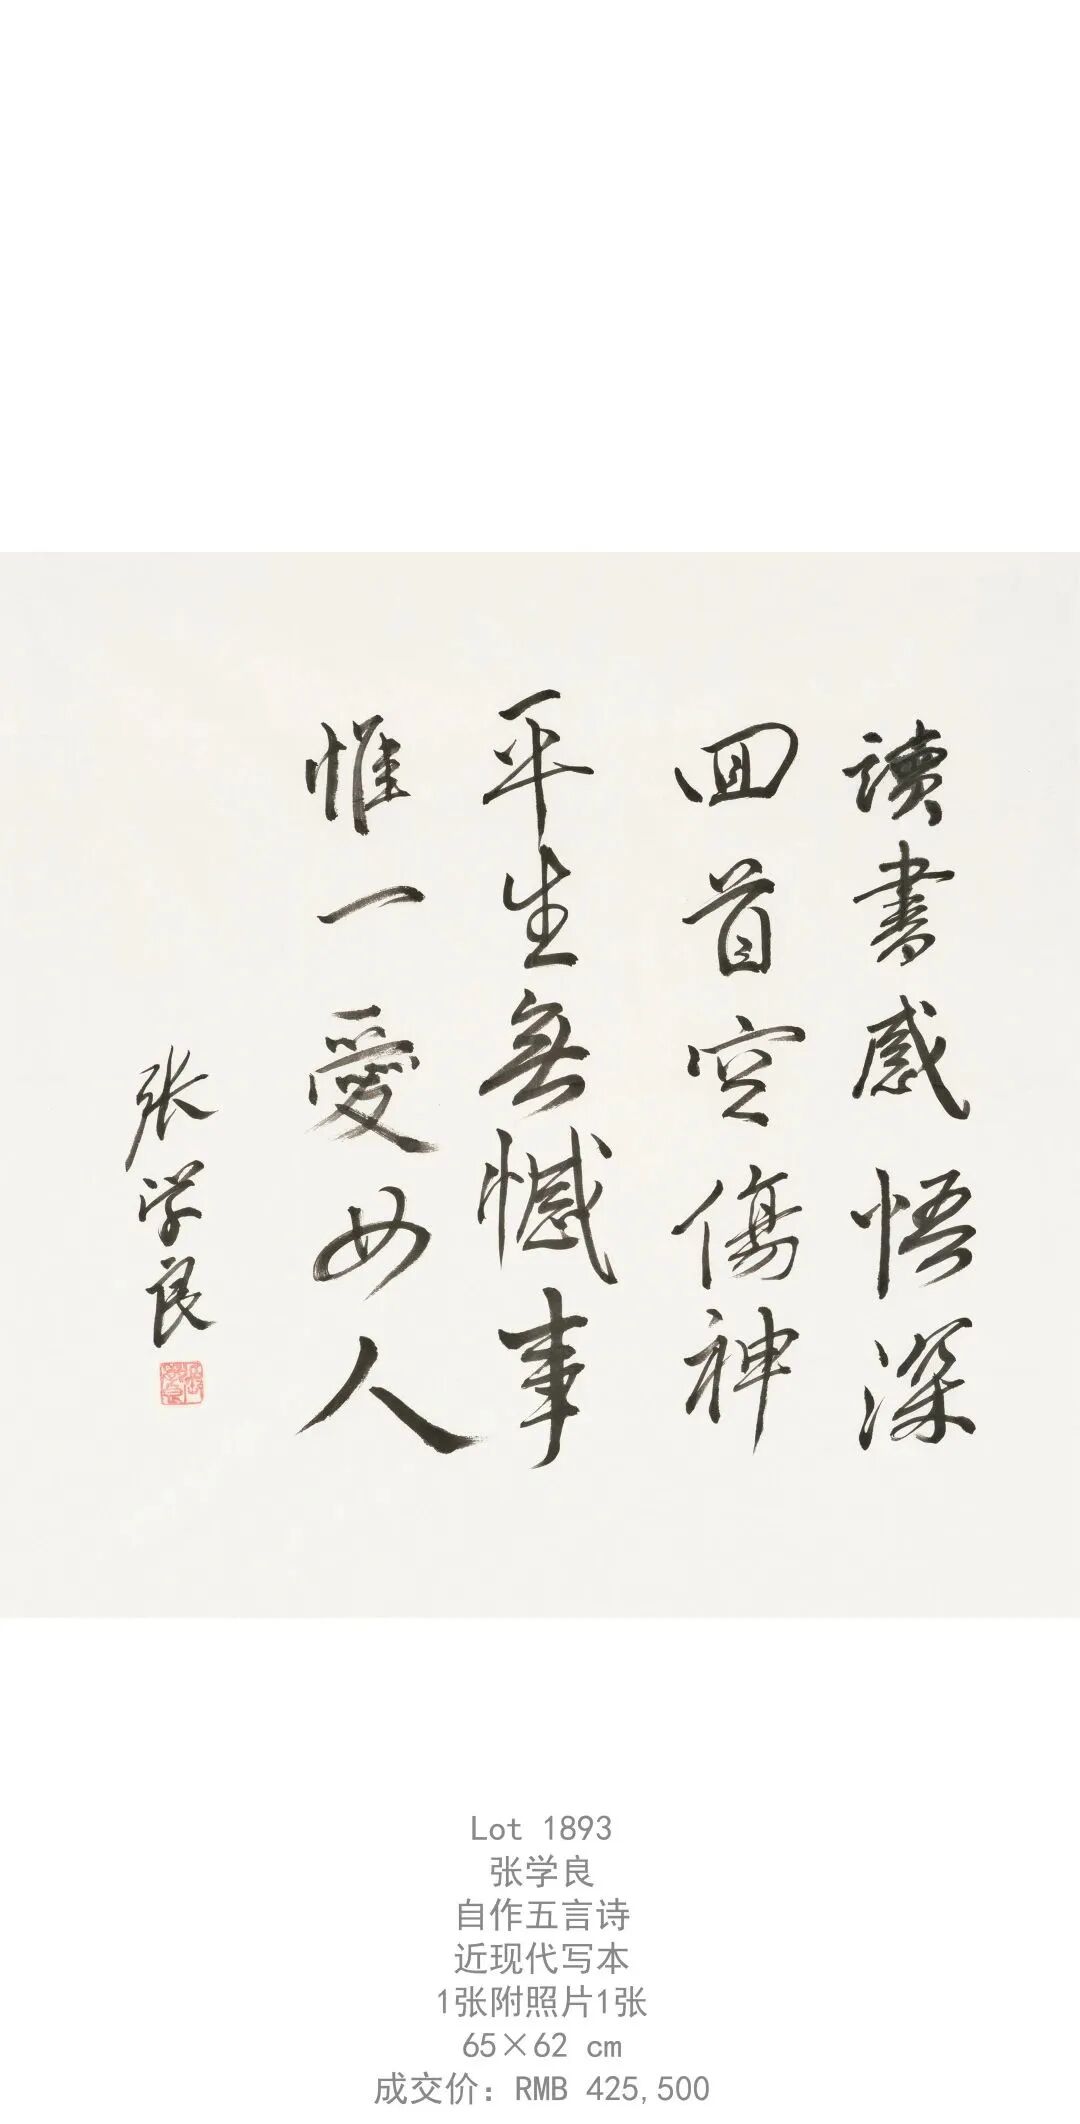 讀書感悟深
回首空傷神
平生無憾事
惟一愛女人
张学良
Lot 1893
张学良
自作五言诗
近现代写本
1张附照片1张
65×62 cm
成交价：RMB 425,500